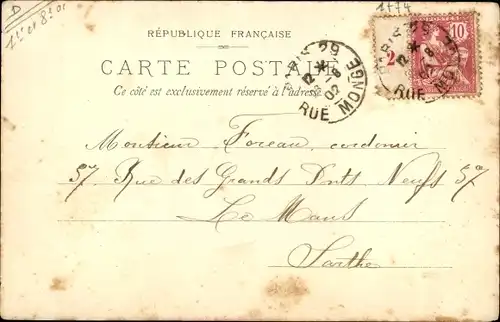 D
1774
RÉPUBLIQUE FRANÇAISE
CARTE POSTALE
Ce côté est exclusivement réservé à l'adresse
PARIS 29
RUE MONGE
02
POSTES
10
2
Monsieur Foreau, cordonnier
57, Rue des Grands Ponts Neufs 57
Le Mans
Sarthe